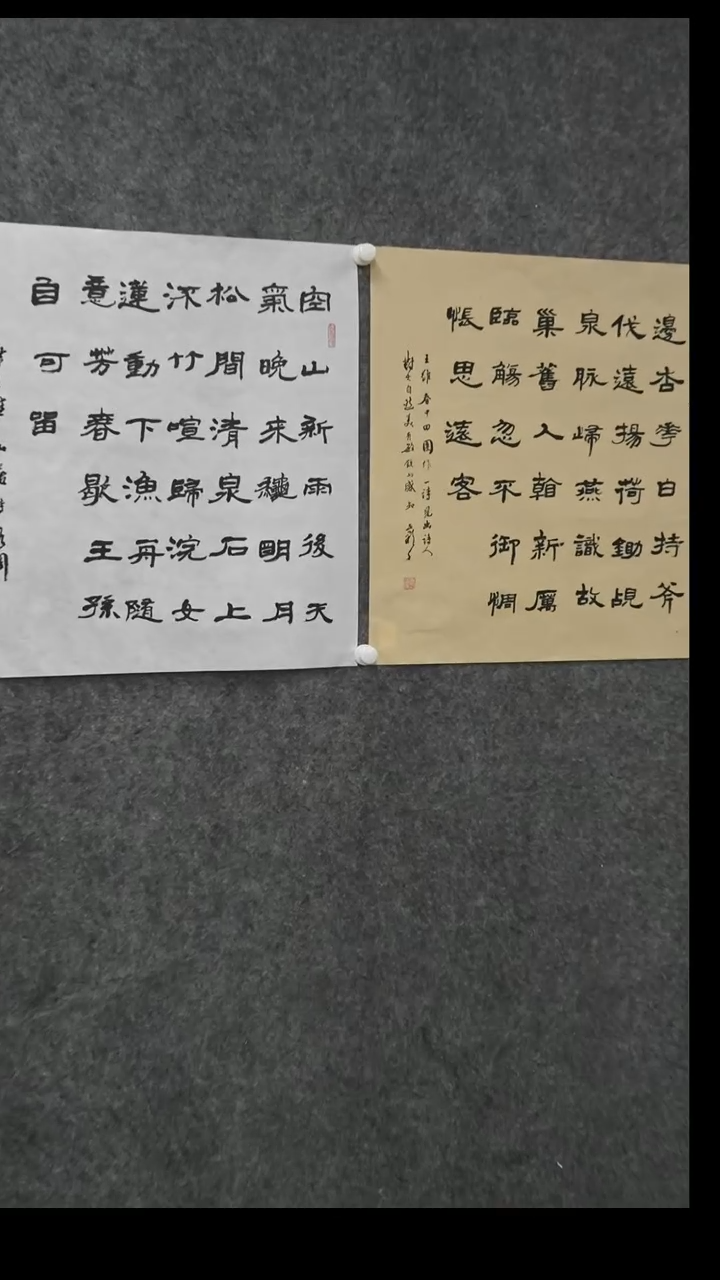 邊杏華白持斧
伐遠揚荷鋤覘
泉脉歸燕識故
巢舊人看新曆
臨觴忽不御惆
悵思遠客
王維春中田園作一詩見出詩人
空山新雨後天
氣晚來龝明月
松間清泉石上
深竹喧歸浣女
蓮動下漁舟隨
意芳春歇王孫
自可留